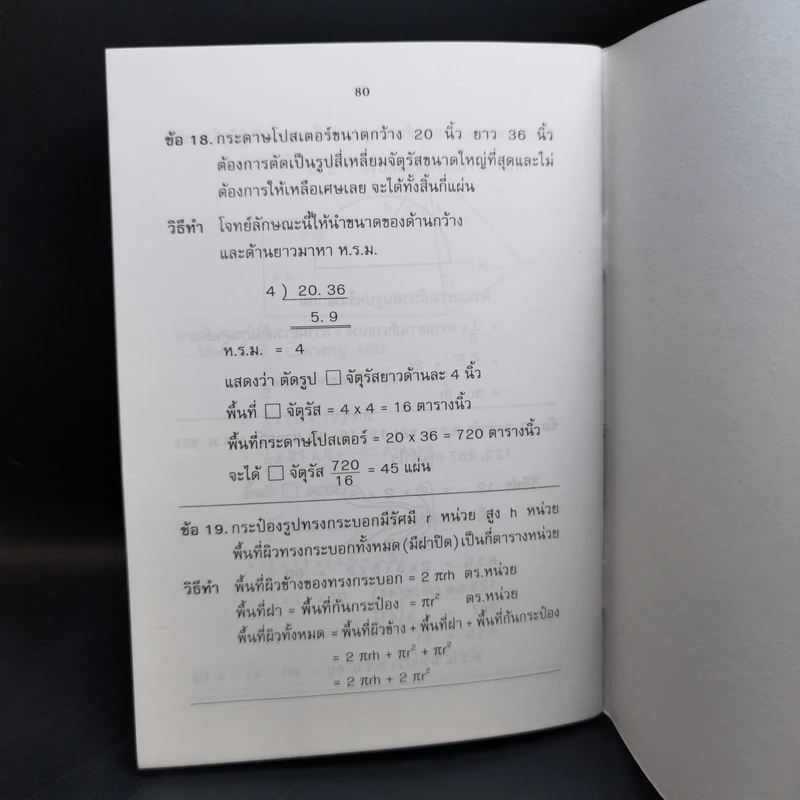 80
ข้อ 18. กระดาษโปสเตอร์ขนาดกว้าง 20 นิ้ว ยาว 36 นิ้ว
ต้องการตัดเป็นรูปสี่เหลี่ยมจัตุรัสขนาดใหญ่ที่สุดและไม่
ต้องการให้เหลือเศษเลย จะได้ทั้งสิ้นกี่แผ่น
วิธีทำ โจทย์ลักษณะนี้ให้นำขนาดของด้านกว้าง
และด้านยาวมาหา ห.ร.ม.
4 ) 20. 36
5. 9
ห.ร.ม. = 4
แสดงว่า ตัดรูป □ จัตุรัสยาวด้านละ 4 นิ้ว
พื้นที่ □ จัตุรัส = 4 x 4 = 16 ตารางนิ้ว
พื้นที่กระดาษโปสเตอร์ = 20 x 36 = 720 ตารางนิ้ว
จะได้ □ จัตุรัส 720/16 = 45 แผ่น
ข้อ 19. กระป๋องรูปทรงกระบอกมีรัศมี r หน่วย สูง h หน่วย
พื้นที่ผิวทรงกระบอกทั้งหมด (มีฝาปิด) เป็นกี่ตารางหน่วย
วิธีทำ พื้นที่ผิวข้างของทรงกระบอก = 2 πrh ตร.หน่วย
พื้นที่ฝา = พื้นที่ก้นกระป๋อง = πr² ตร.หน่วย
พื้นที่ผิวทั้งหมด = พื้นที่ผิวข้าง + พื้นที่ฝา + พื้นที่ก้นกระป๋อง
= 2 πrh + πr² + πr²
= 2 πrh + 2 πr²